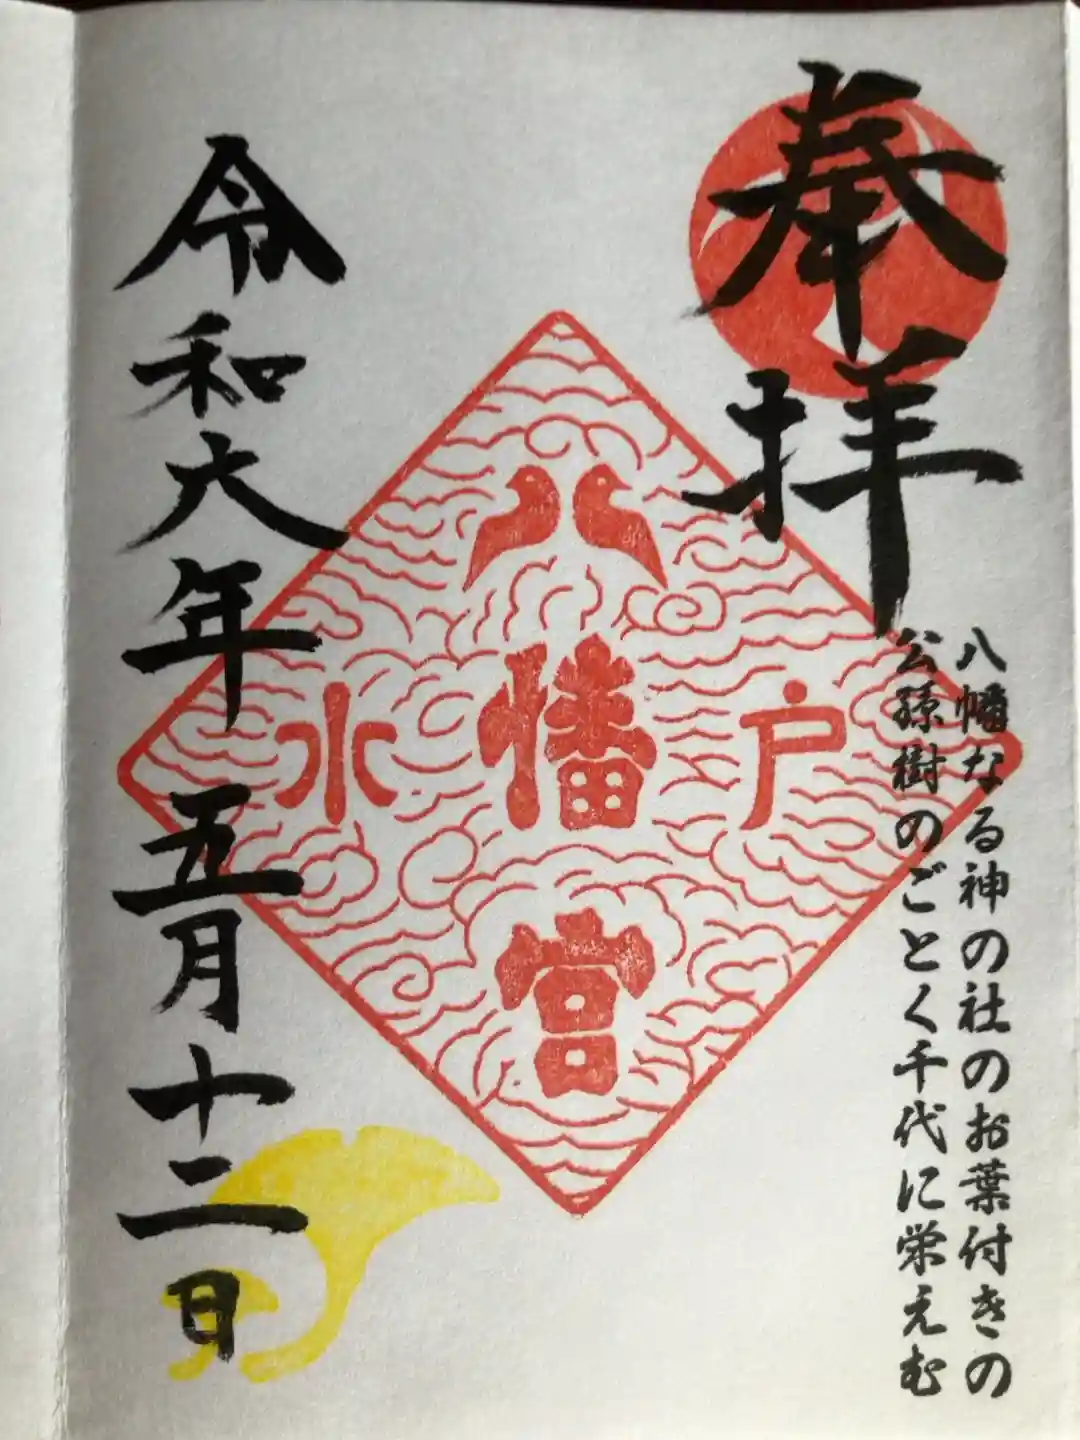 奉拝
八幡なる神の社のお葉付きの
公孫樹のごとく千代に栄えむ
水戸
八幡宮
令和六年五月十二日